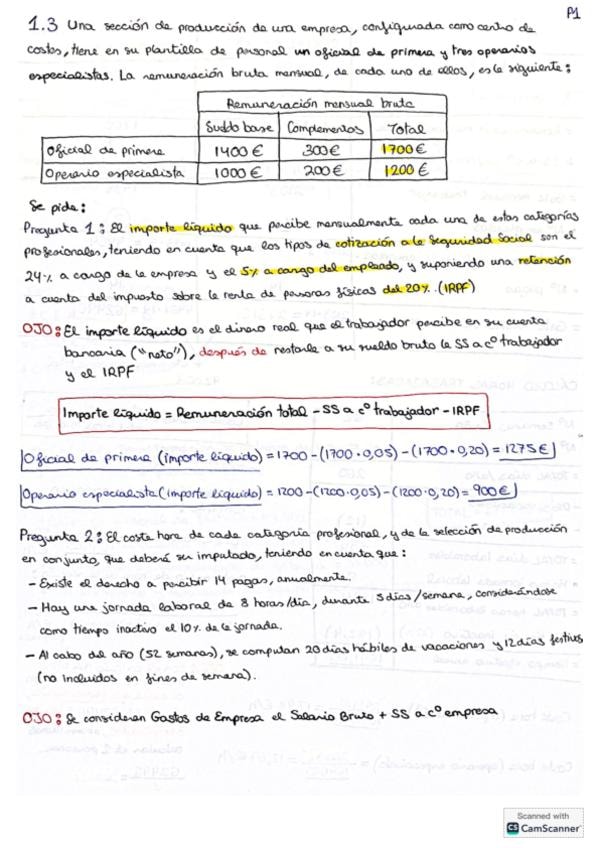 P1
1.3 Una sección de producción de una empresa, configurada como centro de
costos, tiene en su plantilla de personal un oficial de primera y tres operarios
especialistas. La remuneración bruta mensual, de cada uno de ellos, es la siguiente:
Remuneración mensual bruta
Sueldo base Complementos Total
Oficial de primera 1400€ 300€ 1700€
Operario especialista 1000€ 200€ 1200€
Se pide:
Pregunta 1: El importe líquido que percibe mensualmente cada una de estas categorías
profesionales, teniendo en cuenta que los tipos de cotización a la Seguridad Social son el
24% a cargo de la empresa y el 5% a cargo del empleado, y suponiendo una retención
a cuenta del impuesto sobre la renta de personas físicas del 20%. (IRPF)
OJO: El importe líquido es el dinero real que el trabajador percibe en su cuenta
bancaria ("neto"), después de restarle a su sueldo bruto la SS a cº trabajador
y el IRPF
Importe líquido = Remuneración total - SS a cº trabajador - IRPF
Oficial de primera (importe líquido) = 1700 - (1700·0,05) - (1700·0,20) = 1275€
Operario especialista (importe líquido) = 1200 - (1200·0,05) - (1200·0,20) = 900€
Pregunta 2: El coste hora de cada categoría profesional, y de la selección de producción
en conjunto, que deberá ser imputado, teniendo en cuenta que:
- Existe el derecho a percibir 14 pagas, anualmente.
- Hay una jornada laboral de 8 horas/día, durante 5 días/semana, considerándose
como tiempo inactivo el 10% de la jornada.
- Al cabo del año (52 semanas), se computan 20 días hábiles de vacaciones y 12 días festivos
(no incluidos en fines de semana).
OJO: Se consideran Gastos de Empresa el Salario Bruto + SS a cº empresa
Scanned with
CS CamScanner